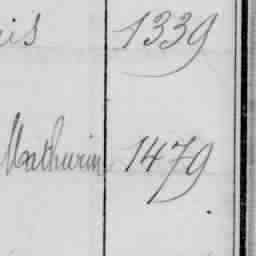 is 1339
Mathurin 1479.